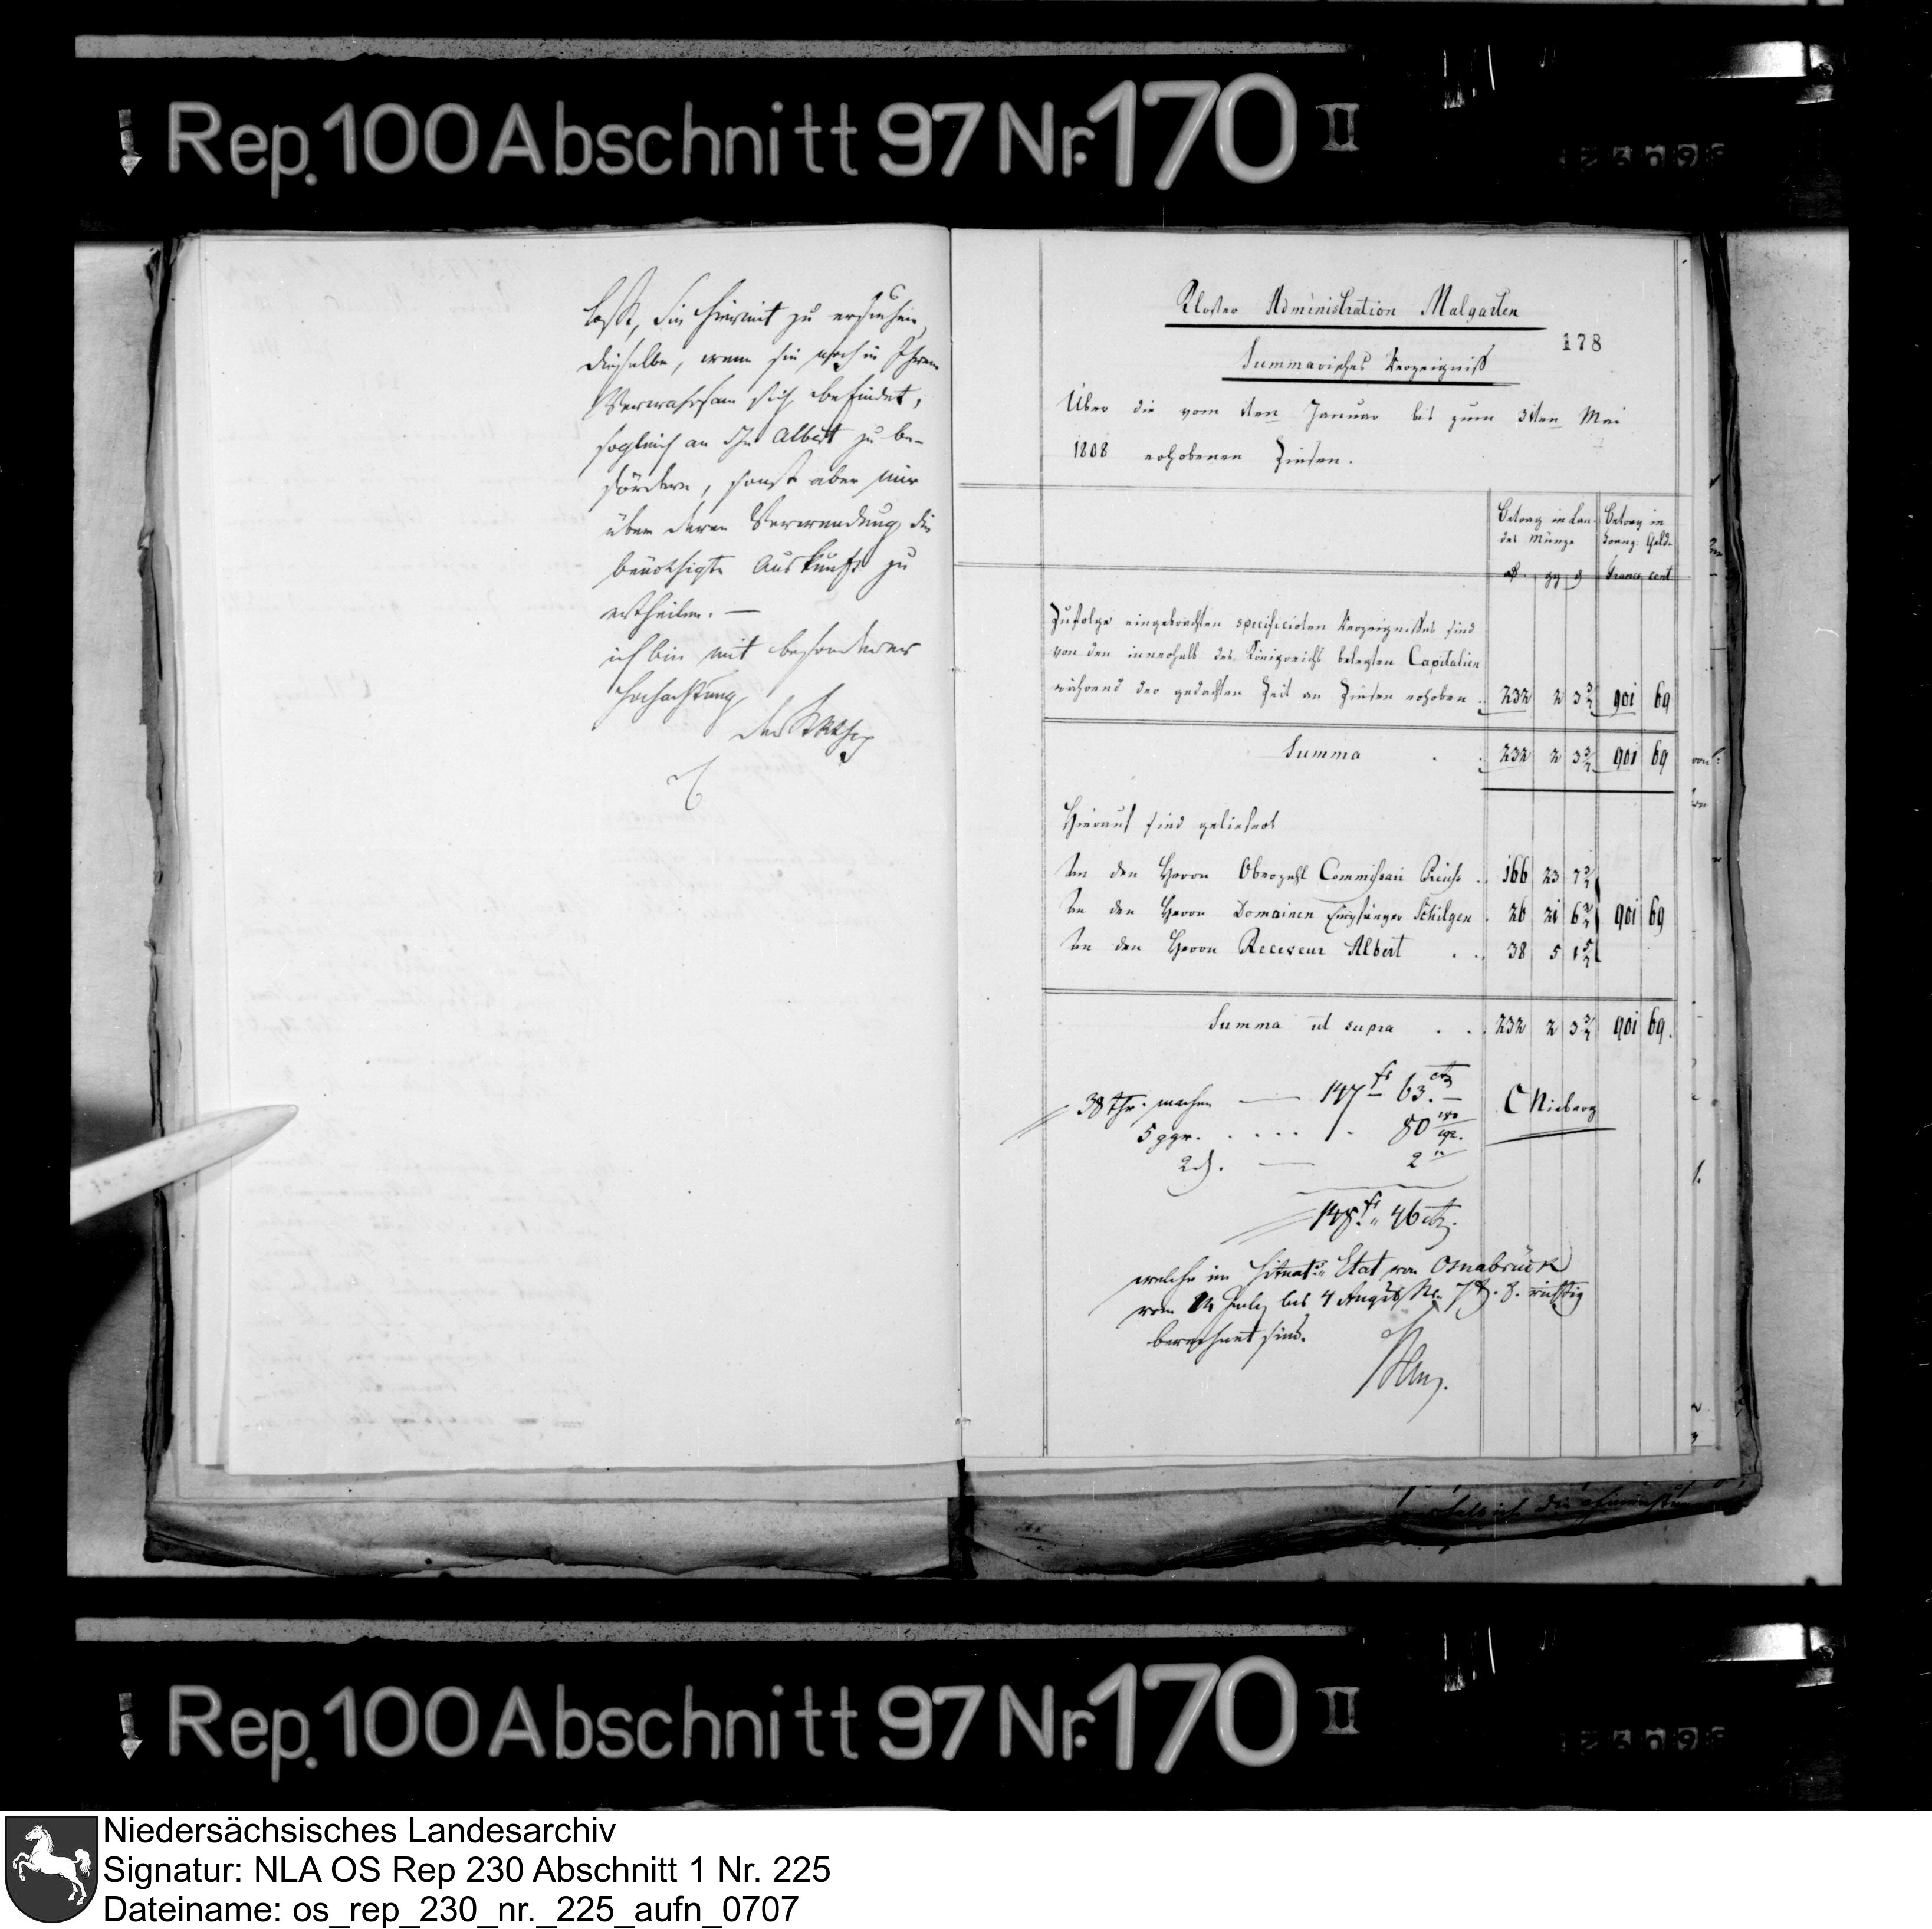 Rep. 100 Abschnitt 97 Nr. 170 II
läßt, Sie hiermit zu ersuchen,
dieselbe, wenn sie noch in Ihrem
Verwahrsam sich befindet,
sogleich an Hn Albert zu be-
fördern, sonst aber mir
über deren Verwendung die
benöthigte Auskunft zu
ertheilen. —
ich bin mit besonderer
Hochachtung
Kloster Administration Malgarten
178
Summarisches Verzeigniß
Über die vom 1ten Januar bis zum 31ten Mai
1808 erhobenen Zinsen.
Betrag in Lan-
des Münze
Betrag in
franz: Gelde
gg
Francs cent
Zufolge eingebrachten specificirten Verzeignißes sind
von den innerhalb des Königreichs belegten Capitalien
während der gedachten Zeit an Zinsen erhoben . 232 2 3 901 69
Summa . . 232 2 3 901 69
Hierauf sind geliefert
An den Herrn Oberzahl Commissair . 166 23 7
An den Herrn Domainen Empfänger Schilgen . 26 21 6 901 69
An den Herrn Receveur Albert . . 38 5 1
Summa ut supra . . 232 2 3 901 69.
38 Thr. machen — 147 fr 63. cts
5 ggr. . . . . 80
2 d. — 2
148 fr 46 cts.
C Nieberg
welche im Situat: Etat von Osnabrück
vom July bis 4 August richtig
berechnet sind.
Rep. 100 Abschnitt 97 Nr. 170 II
Niedersächsisches Landesarchiv
Signatur: NLA OS Rep 230 Abschnitt 1 Nr. 225
Dateiname: os_rep_230_nr._225_aufn_0707